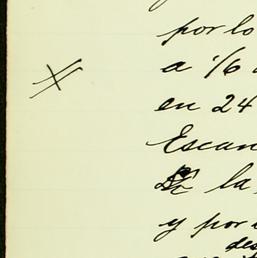 por lo
a 1/6
en 24
Escan
la
y por
des